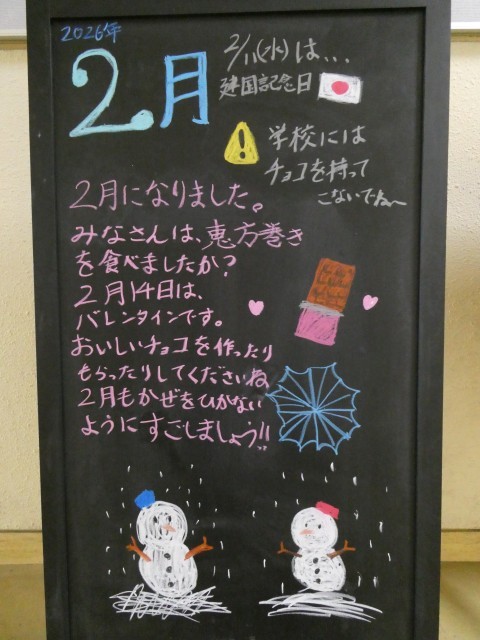 2026年
2月
2/11(水)は...
建国記念日
学校には
チョコを持って
こないでね〜
2月になりました。
みなさんは、恵方巻き
を食べましたか?
2月14日は、
バレンタインです。
おいしいチョコを作ったり
もらったりしてくださいね
2月もかぜをひかない
ようにすごしましょう!!